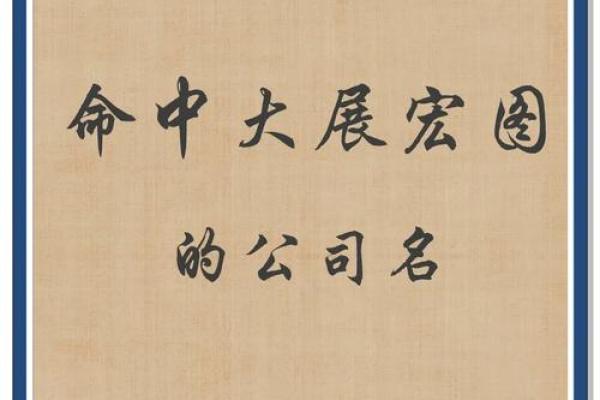 命中大展宏图
的公司名